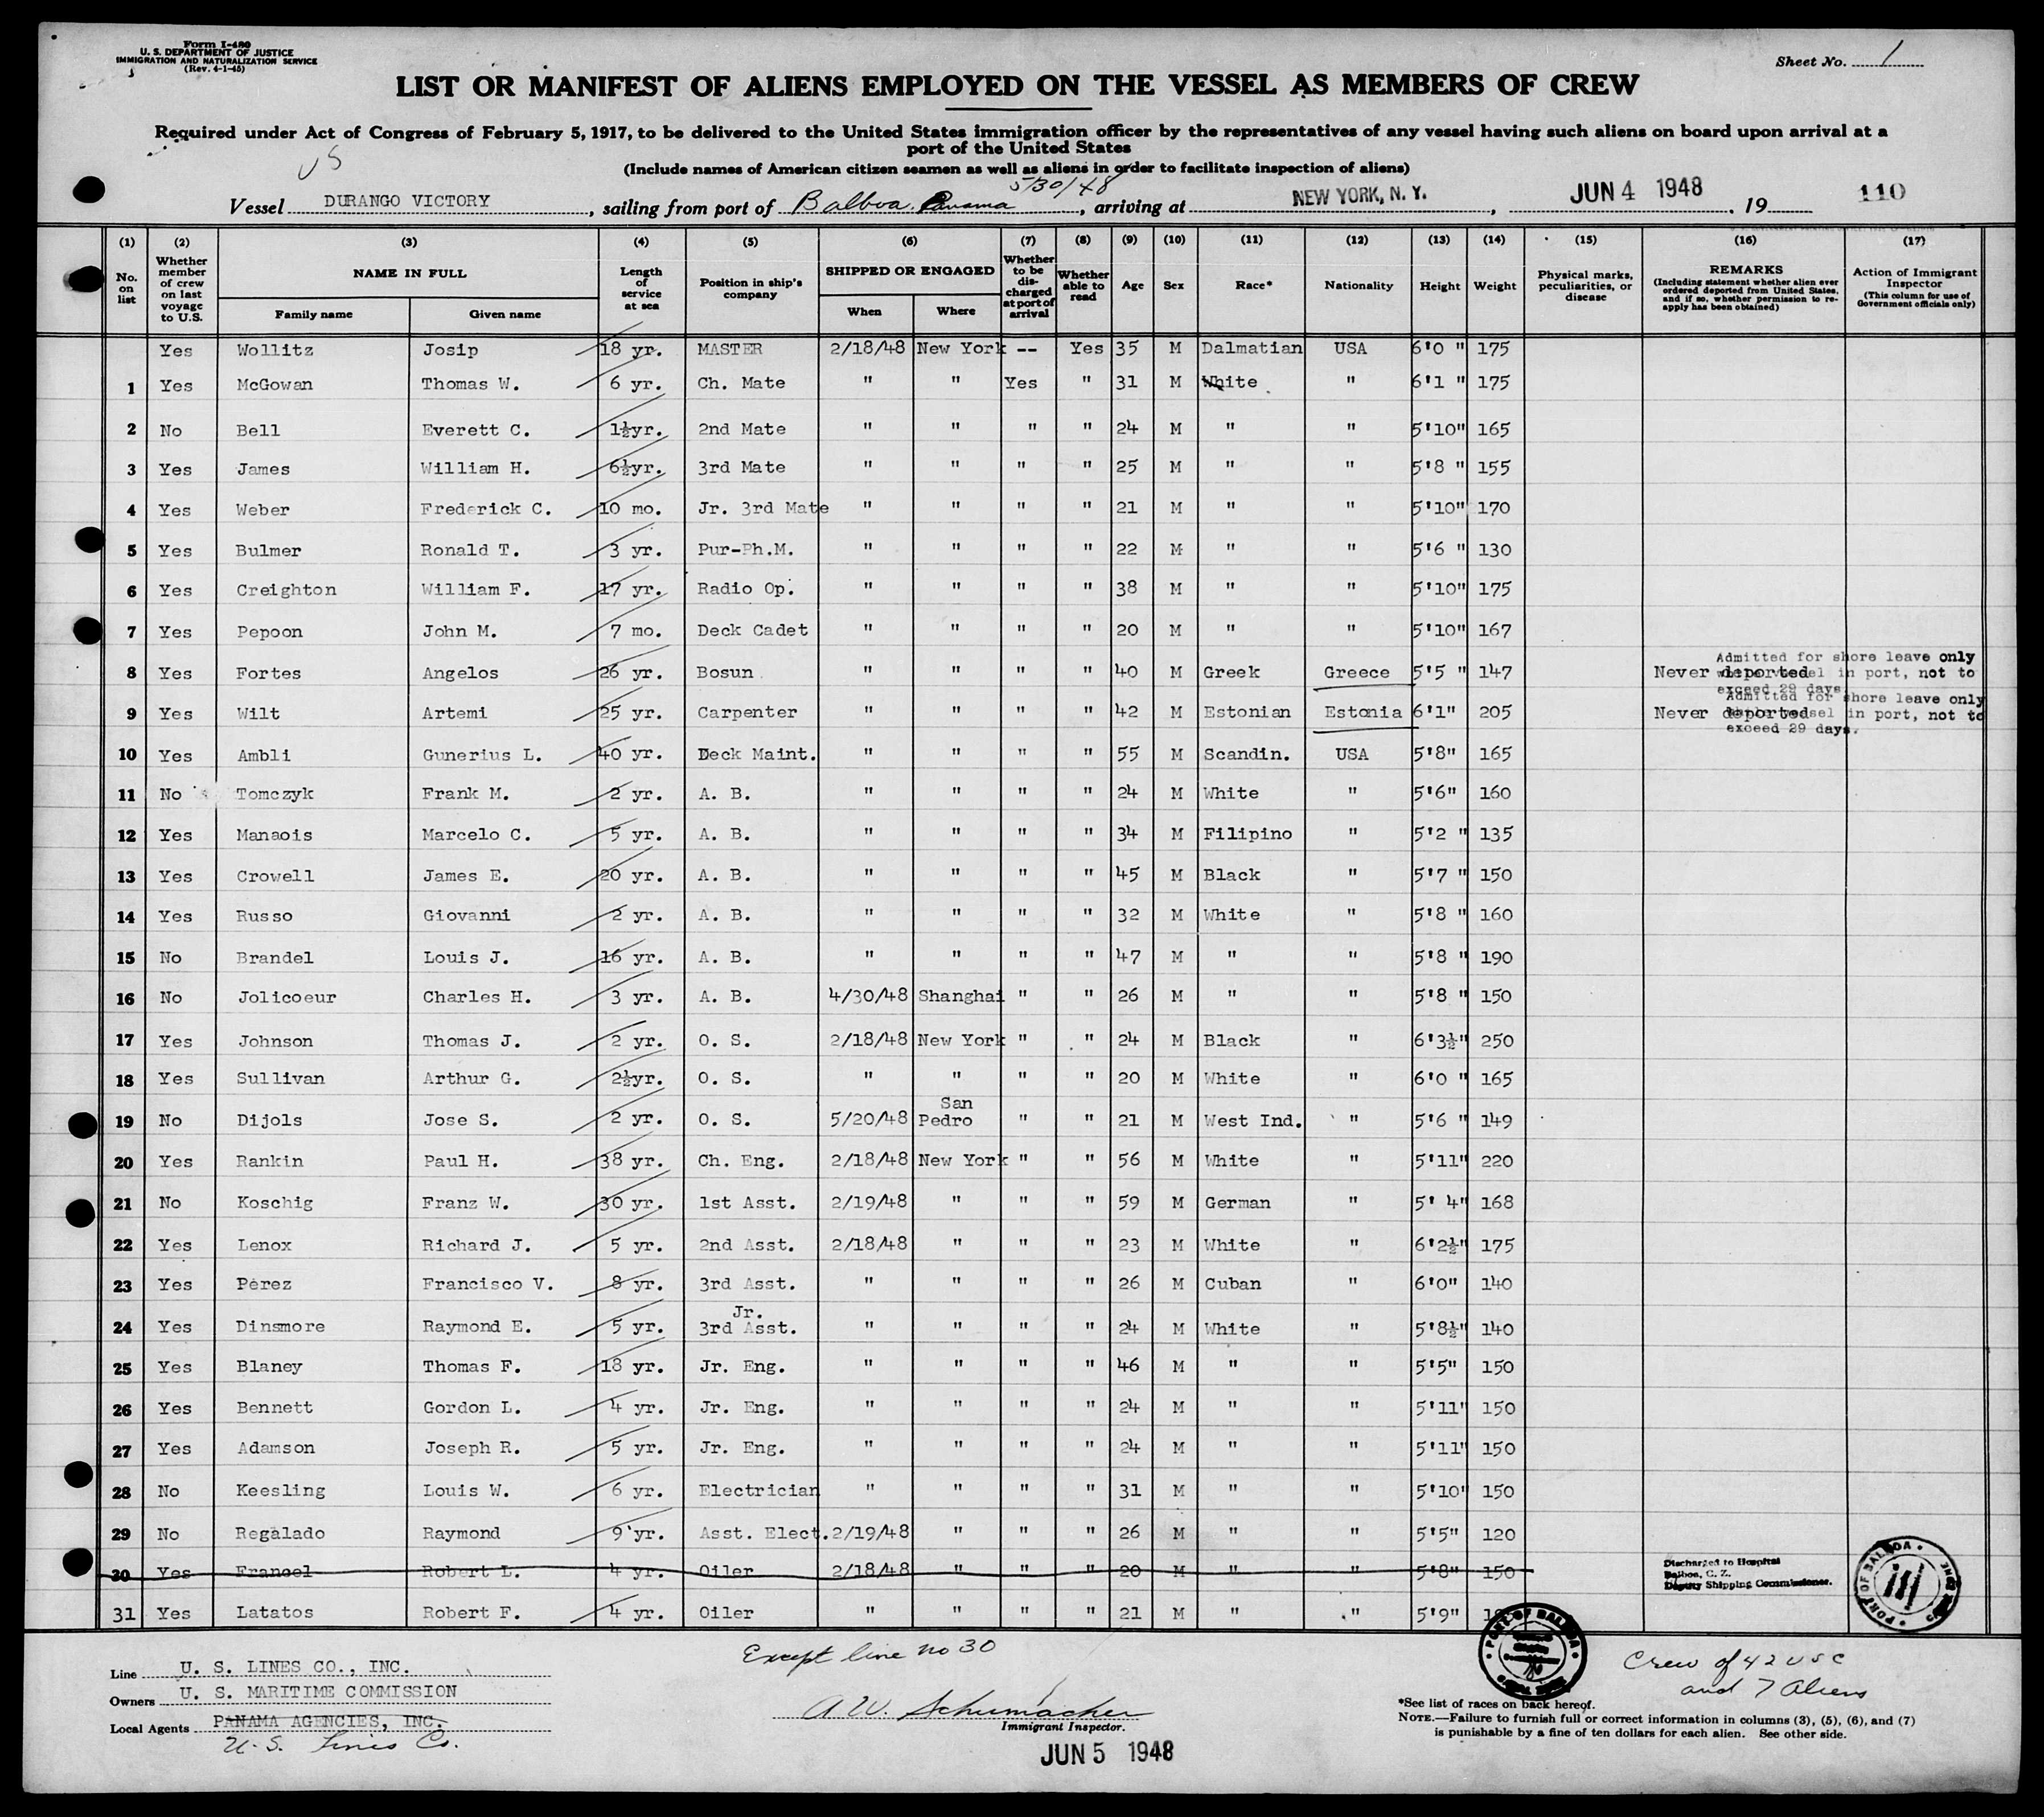 Form I-480
U. S. DEPARTMENT OF JUSTICE
IMMIGRATION AND NATURALIZATION SERVICE
(Rev. 4-1-45)
Sheet No. 1
LIST OR MANIFEST OF ALIENS EMPLOYED ON THE VESSEL AS MEMBERS OF CREW
Required under Act of Congress of February 5, 1917, to be delivered to the United States immigration officer by the representatives of any vessel having such aliens on board upon arrival at a
port of the United States
US
(Include names of American citizen seamen as well as aliens in order to facilitate inspection of aliens)
5/30/48
Vessel DURANGO VICTORY, sailing from port of Balboa, Panama, arriving at NEW YORK, N. Y., JUN 4 1948, 19 110
(1) No. on list (2) Whether member of crew on last voyage to U.S. (3) NAME IN FULL Family name Given name (4) Length of service at sea (5) Position in ship's company (6) SHIPPED OR ENGAGED When Where (7) Whether to be discharged at port of arrival (8) Whether able to read (9) Age (10) Sex (11) Race* (12) Nationality (13) Height (14) Weight (15) Physical marks, peculiarities, or disease (16) REMARKS (Including statement whether alien ever ordered deported from United States, and if so, whether permission to re-apply has been obtained) (17) Action of Immigrant Inspector (This column for use of Government officials only)
Yes Wollitz Josip 18 yr. MASTER 2/18/48 New York -- Yes 35 M Dalmatian USA 6'0 " 175
1 Yes McGowan Thomas W. 6 yr. Ch. Mate " " Yes " 31 M White " 6'1 " 175
2 No Bell Everett C. 1½yr. 2nd Mate " " " " 24 M " " 5'10" 165
3 Yes James William H. 6½yr. 3rd Mate " " " " 25 M " " 5'8 " 155
4 Yes Weber Frederick C. 10 mo. Jr. 3rd Mate " " " " 21 M " " 5'10" 170
5 Yes Bulmer Ronald T. 3 yr. Pur-Ph.M. " " " " 22 M " " 5'6 " 130
6 Yes Creighton William F. 17 yr. Radio Op. " " " " 38 M " " 5'10" 175
7 Yes Pepoon John M. 7 mo. Deck Cadet " " " " 20 M " " 5'10" 167
8 Yes Fortes Angelos 26 yr. Bosun " " " " 40 M Greek Greece 5'5 " 147 Never deported Admitted for shore leave only while vessel in port, not to exceed 29 days
9 Yes Wilt Artemi 25 yr. Carpenter " " " " 42 M Estonian Estonia 6'1" 205 Never deported Admitted for shore leave only while vessel in port, not to exceed 29 days.
10 Yes Ambli Gunerius L. 40 yr. Deck Maint. " " " " 55 M Scandin. USA 5'8" 165
11 No Tomczyk Frank M. 2 yr. A. B. " " " " 24 M White " 5'6" 160
12 Yes Manaois Marcelo C. 5 yr. A. B. " " " " 34 M Filipino " 5'2 " 135
13 Yes Crowell James E. 20 yr. A. B. " " " " 45 M Black " 5'7 " 150
14 Yes Russo Giovanni 2 yr. A. B. " " " " 32 M White " 5'8 " 160
15 No Brandel Louis J. 16 yr. A. B. " " " " 47 M " " 5'8 " 190
16 No Jolicoeur Charles H. 3 yr. A. B. 4/30/48 Shanghai " " 26 M " " 5'8 " 150
17 Yes Johnson Thomas J. 2 yr. O. S. 2/18/48 New York " " 24 M Black " 6'3½" 250
18 Yes Sullivan Arthur G. 2½yr. O. S. " " " " 20 M White " 6'0 " 165
19 No Dijols Jose S. 2 yr. O. S. 5/20/48 San Pedro " " 21 M West Ind. " 5'6 " 149
20 Yes Rankin Paul H. 38 yr. Ch. Eng. 2/18/48 New York " " 56 M White " 5'11" 220
21 No Koschig Franz W. 30 yr. 1st Asst. 2/19/48 " " " 59 M German " 5' 4" 168
22 Yes Lenox Richard J. 5 yr. 2nd Asst. 2/18/48 " " " 23 M White " 6'2½" 175
23 Yes Perez Francisco V. 8 yr. 3rd Asst. " " " " 26 M Cuban " 6'0" 140
24 Yes Dinsmore Raymond E. 5 yr. Jr. 3rd Asst. " " " " 24 M White " 5'8½" 140
25 Yes Blaney Thomas F. 18 yr. Jr. Eng. " " " " 46 M " " 5'5" 150
26 Yes Bennett Gordon L. 4 yr. Jr. Eng. " " " " 24 M " " 5'11" 150
27 Yes Adamson Joseph R. 5 yr. Jr. Eng. " " " " 24 M " " 5'11" 150
28 No Keesling Louis W. 6 yr. Electrician " " " " 31 M " " 5'10" 150
29 No Regalado Raymond 9 yr. Asst. Elect. 2/19/48 " " " 26 M " " 5'5" 120
30 Yes Francel Robert L. 4 yr. Oiler 2/18/48 " " " 20 M " " 5'8" 150 Discharged to Hospital Balboa, C. Z. Deputy Shipping Commissioner. PORT OF BALBOA
31 Yes Latatos Robert F. 4 yr. Oiler " " " " 21 M " " 5'9"
PORT OF BALBOA
Except line no 30
Crew of 42 USC
and 7 Aliens
Line U. S. LINES CO., INC.
Owners U. S. MARITIME COMMISSION
Local Agents PANAMA AGENCIES, INC.
U. S. Lines Co.
A. W. Schumacher
Immigrant Inspector.
JUN 5 1948
*See list of races on back hereof.
NOTE.—Failure to furnish full or correct information in columns (3), (5), (6), and (7)
is punishable by a fine of ten dollars for each alien. See other side.